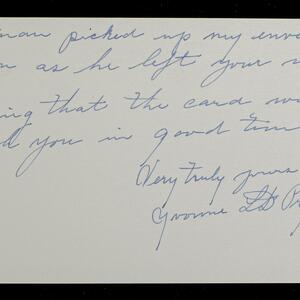 man picked up my
as he left your
ing that the card
you in good time
Very truly yours
Yvonne